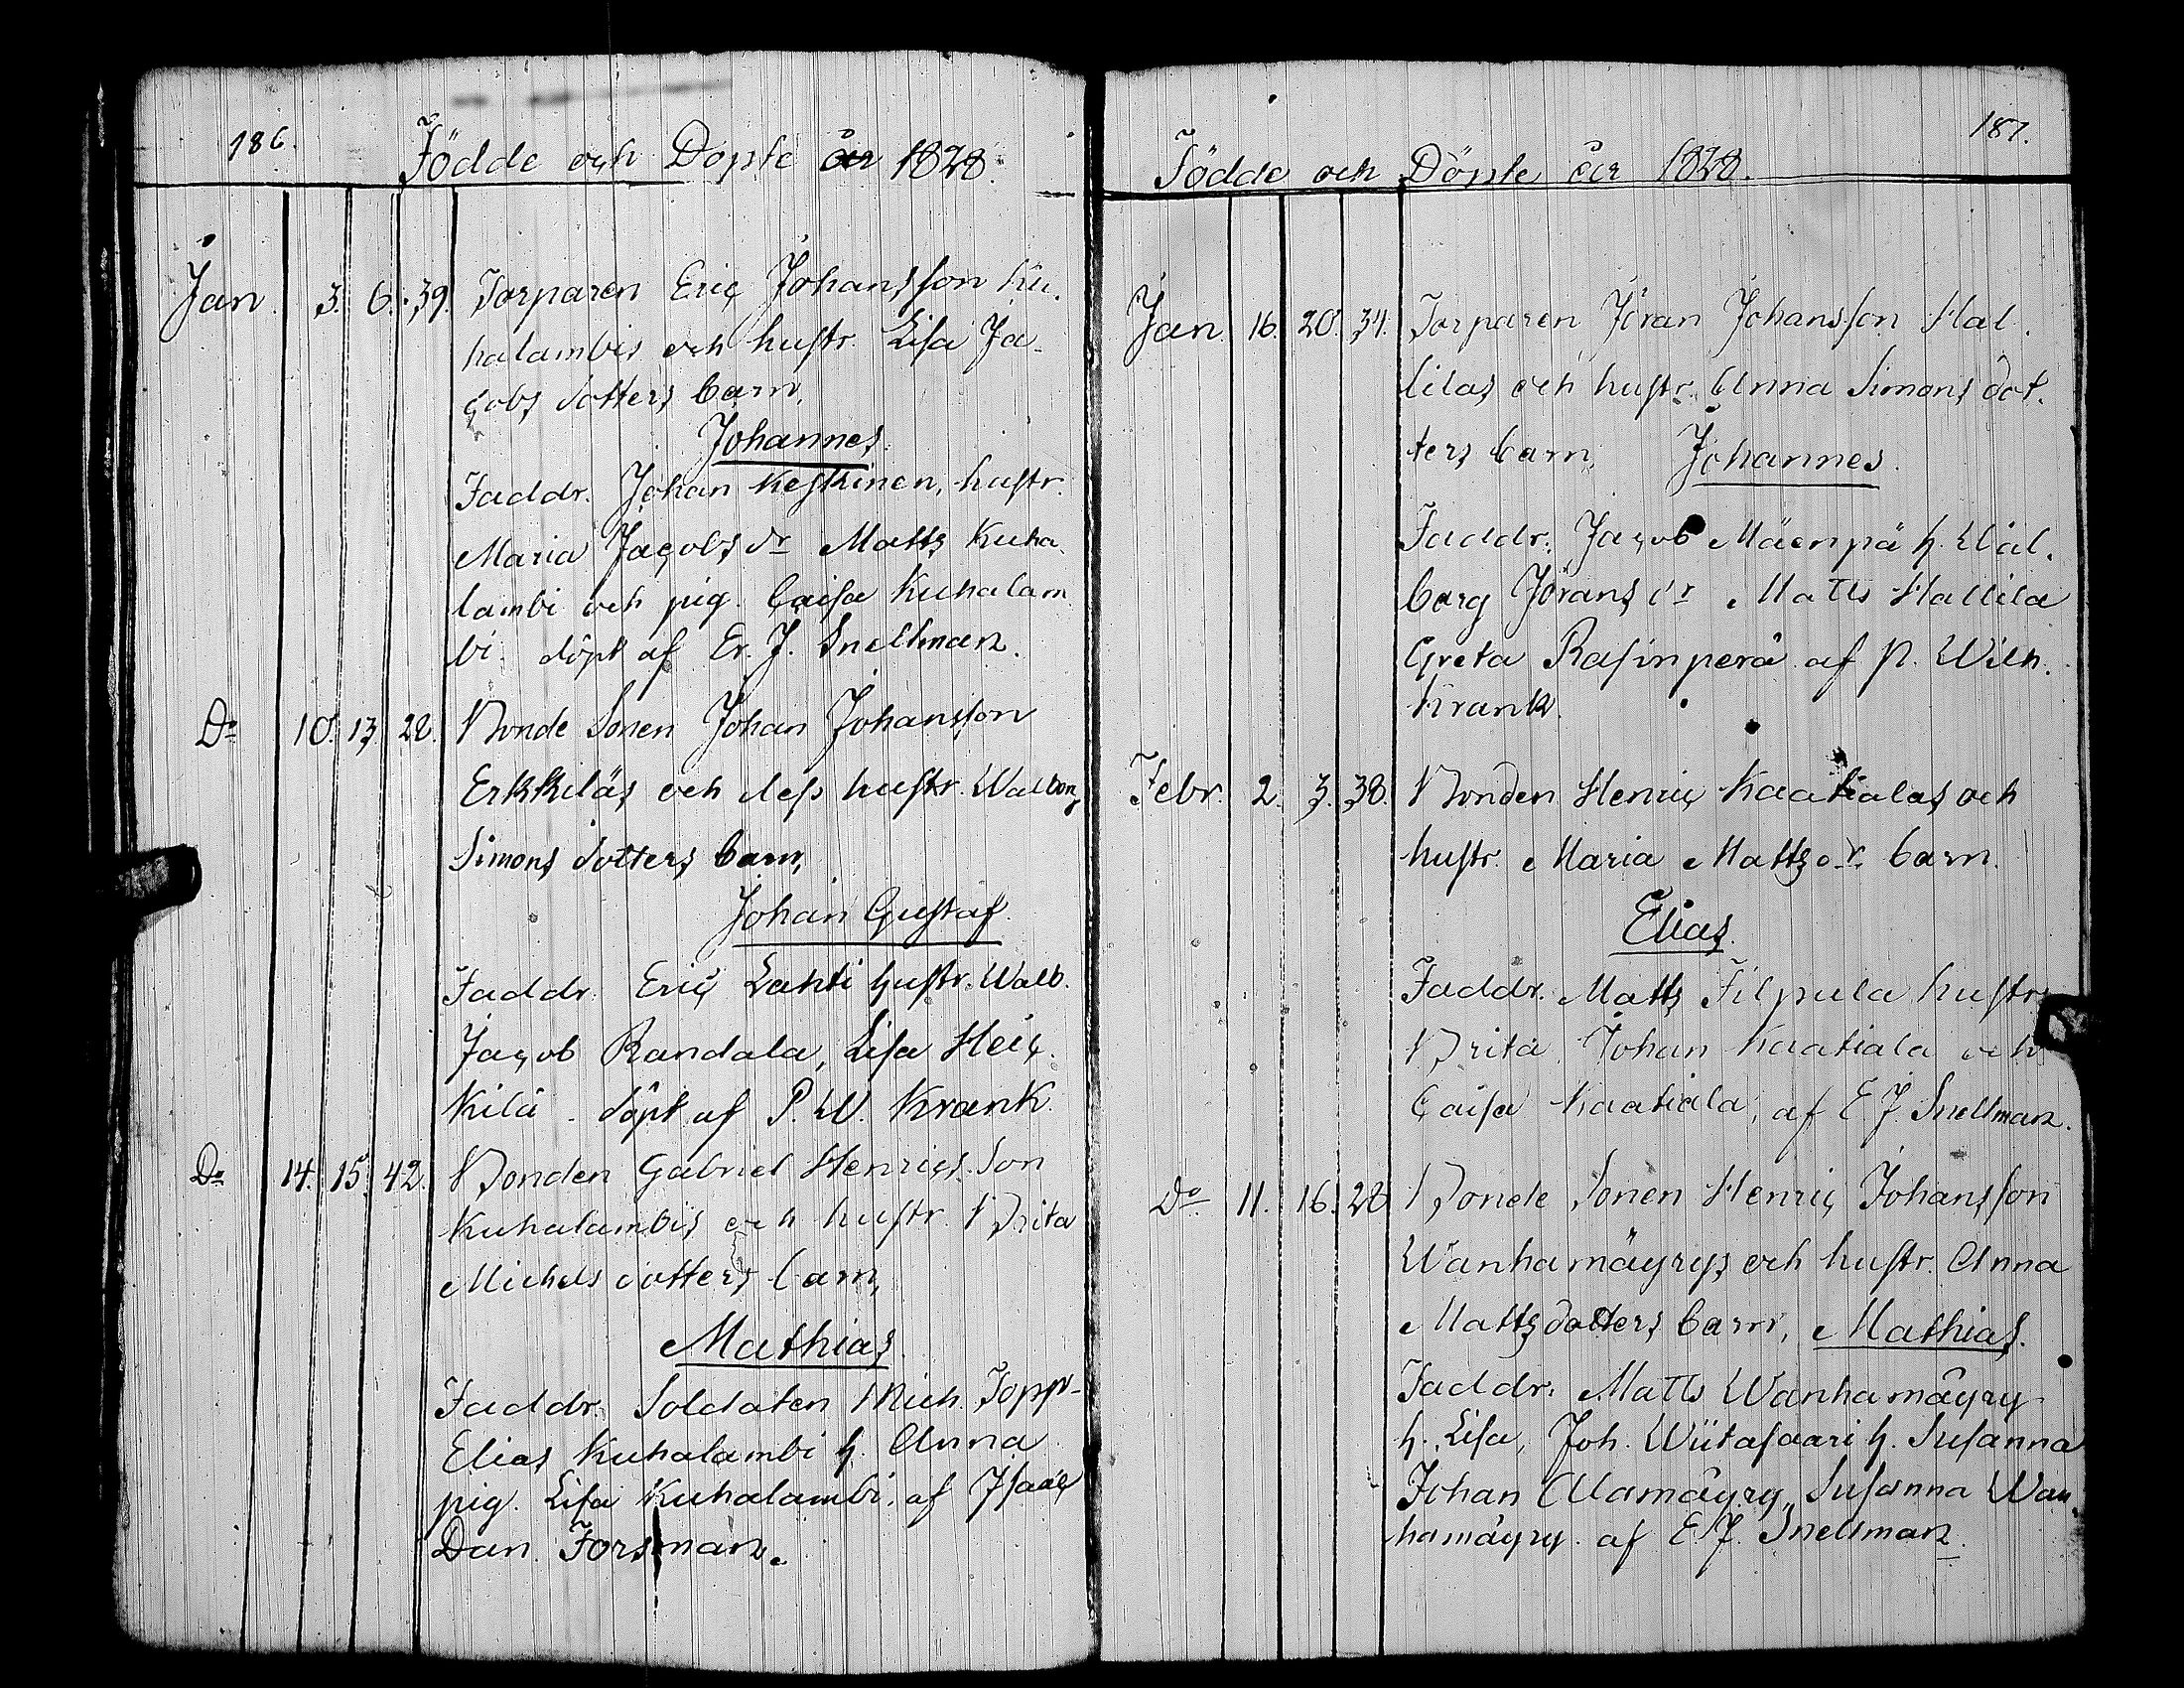 186.
Födde och Döpte år 1828.
Jan. 3. 6. 39. Torparen Eric Johansson Ku-
halambis och hustr. Lisa Ja-
cobs dotters barn,
Johannes.
Faddr. Johan Keskinen, hustr.
Maria Jacobs dr Matts Kuha-
lambi och pig. Caisa Kuhalam
bi. döpt af Er. J. Snellman.
Do 10. 13. 28. Bonde Sonen Johan Johansson
Erkkiläs och dess hustr. Walborg
Simons dotters barn,
Johan Gustaf.
Faddr. Eric Lahti hustr. Walb.
Jacob Randala, Lisa Heic-
kilä. döpt af P. W. Krank.
Do 14. 15. 42. Bonden Gabriel Henrics Son
Kuhalambis och hustr. Brita
Michels dotters barn,
Mathias.
Faddr. Soldaten Mich. Topp-
Elias Kuhalambi h. Anna
pig. Lisa Kuhalambi. af Isaac
Dan. Forsman.
187.
Födde och Döpte år 1828.
Jan. 16. 20. 34. Torparen Jöran Johansson Hal-
lilas och hustr. Anna Simons dot-
ters barn, Johannes.
Faddr. Jacob Mäenpä h. Wal-
borg Jörans dr Matts Hallila
Greta Rasinperä af P. Wilh.
Krank.
Febr. 2. 3. 38. Bonden Henric Kaatialas och
hustr. Maria Mattsdr. barn.
Elias.
Faddr. Matts Filpula hustr.
Brita Johan Kaatiala och
Caisa Kaatiala, af E. J. Snellman.
Do 11. 16. 28 Bonde Sonen Henric Johansson
Wanhamäyrys och hustr. Anna
Mattsdotters barn, Mathias.
Faddr. Matts Wanhamäyry
h. Lisa, Joh. Wiitasaari h. Susanna
Johan Alamäyry, Susanna Wan-
hamäyry. af E. J. Snellman.